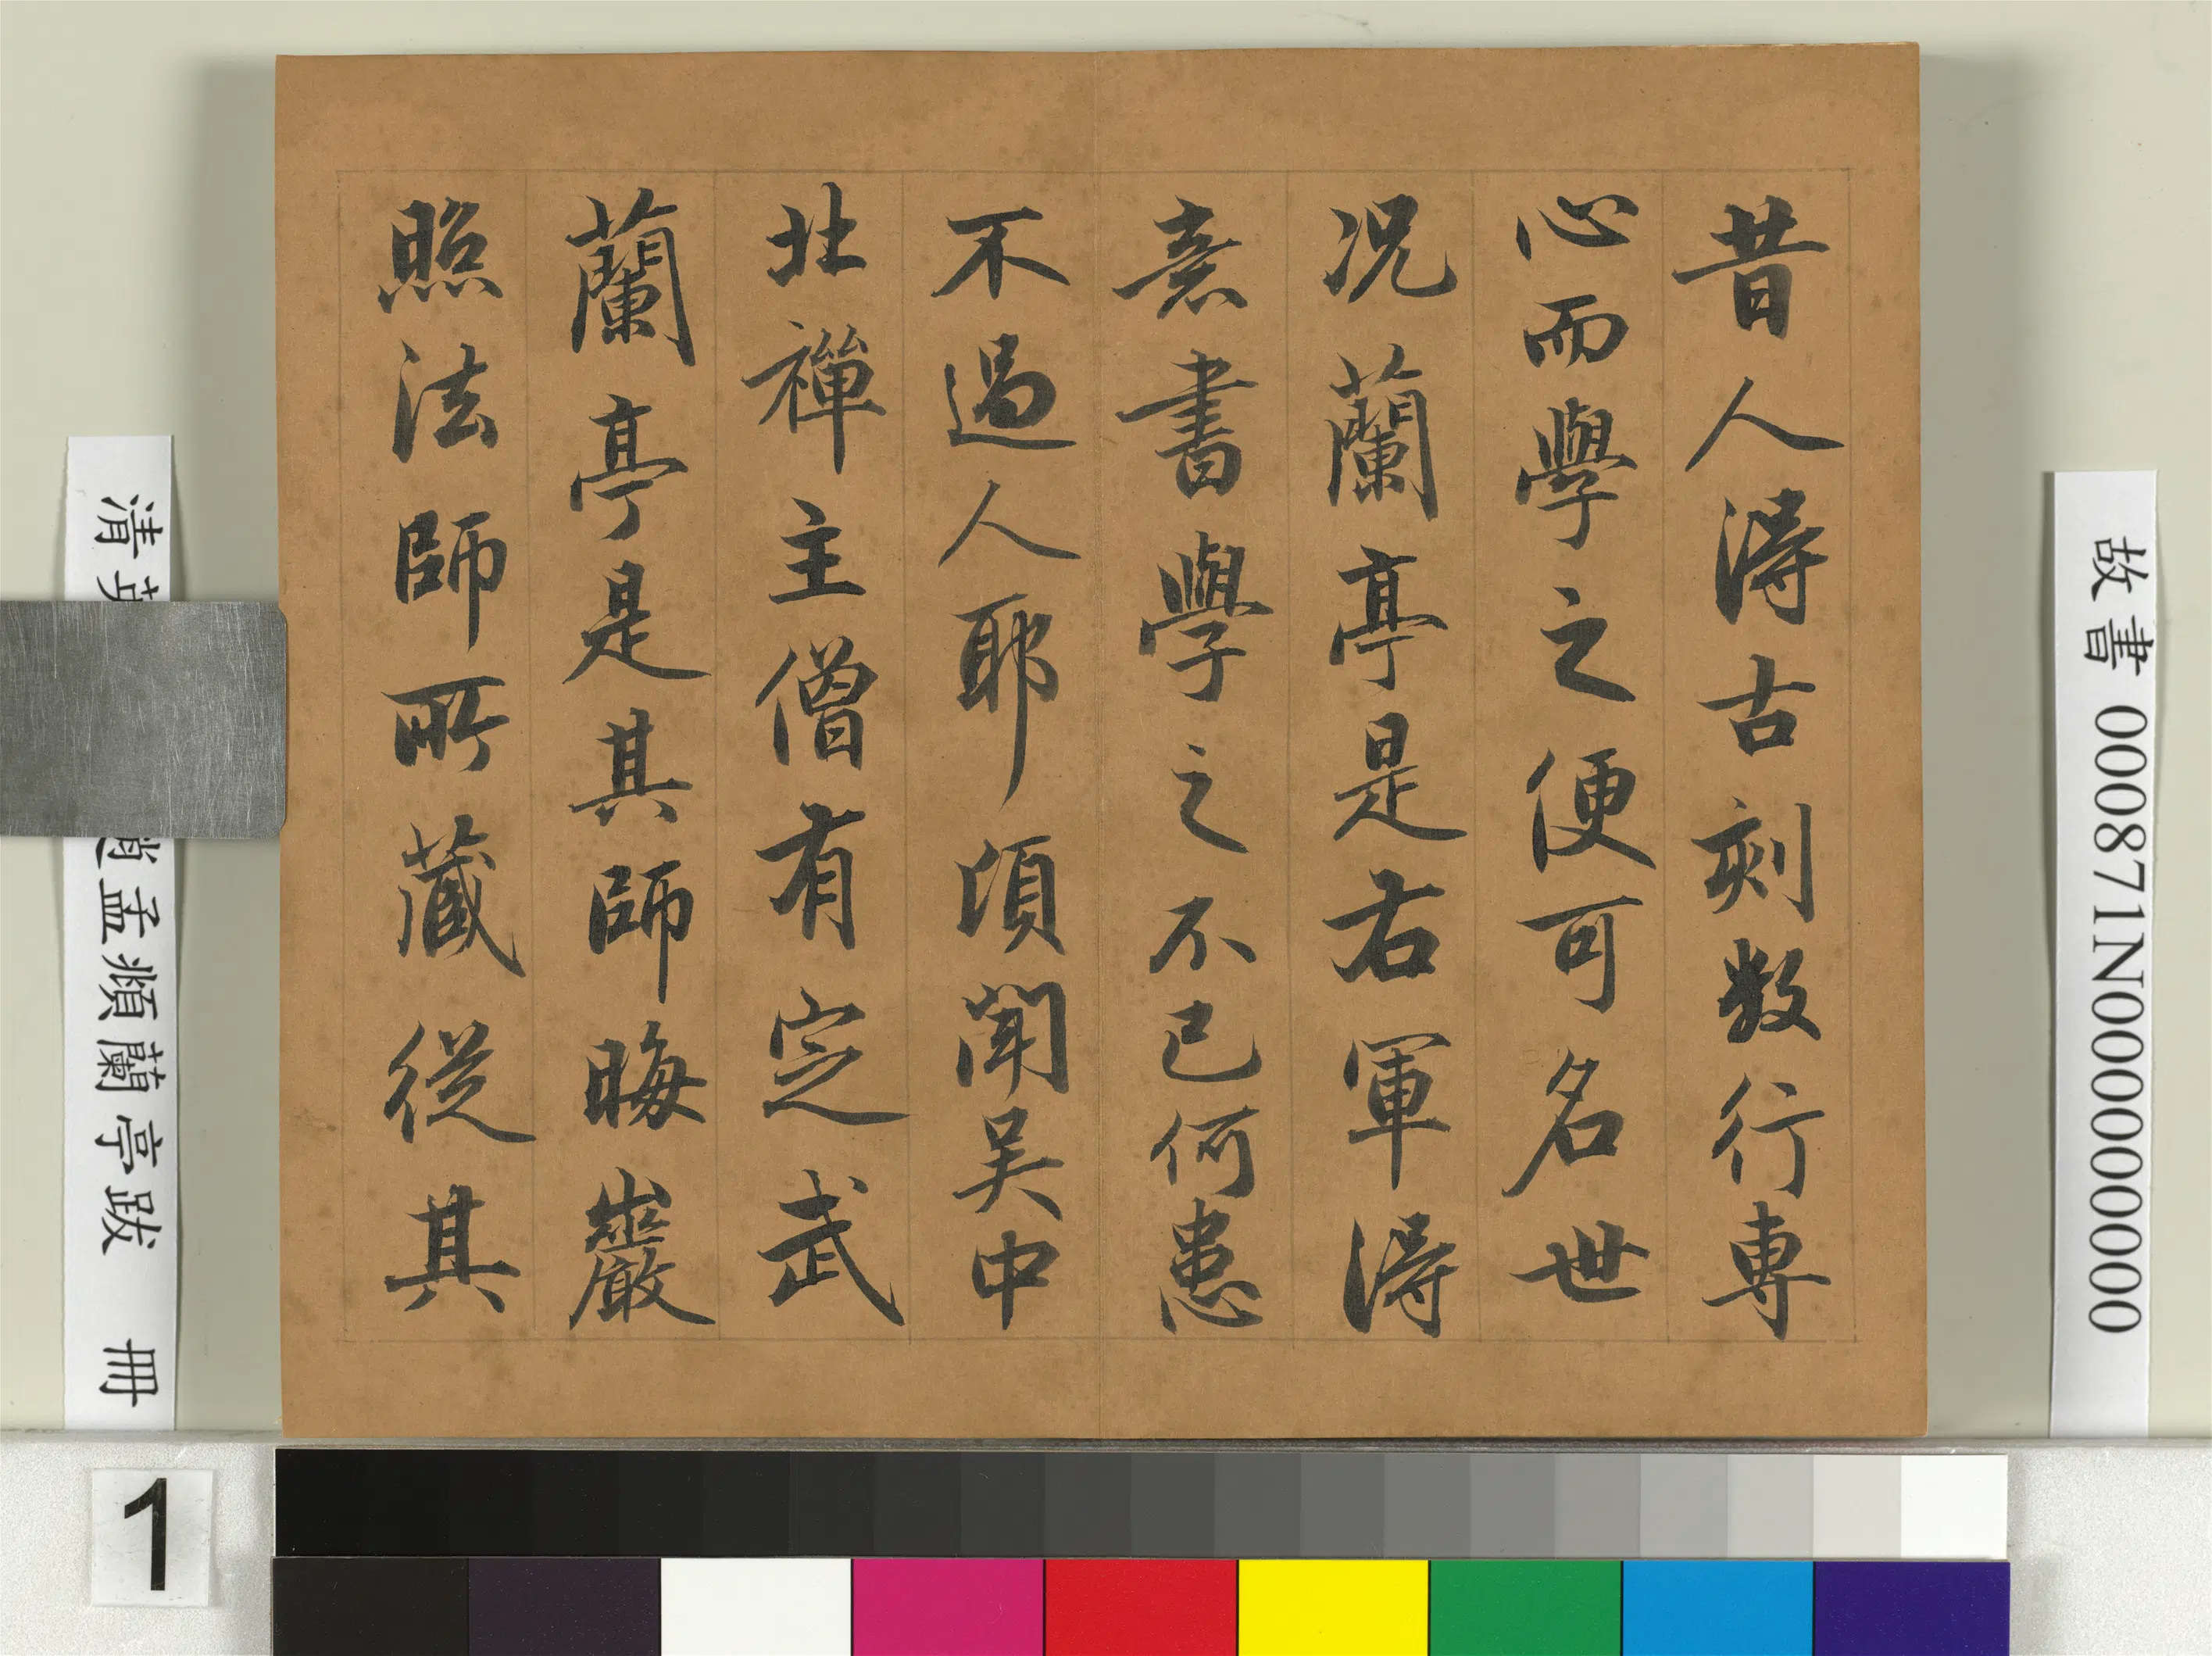 昔人得古刻数行專
心而學之便可名世
况蘭亭是右軍得
意書學之不已何患
不過人耶頃聞吴中
北禪主僧有定武
蘭亭是其師晦巖
照法師所藏從其
故書 000871N000000000
清
孟頫蘭亭跋 冊
1